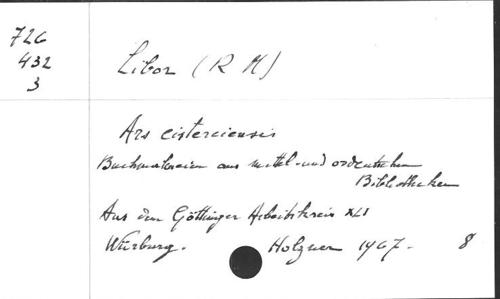 726
432
3
Libor (R M)
Ars cisterciensis
Buchmalereien aus mittel- und ostdeutschen
Bibliotheken
Aus dem Göttinger Arbeitskreis XLI
Würburg. Holzner 1967. 8